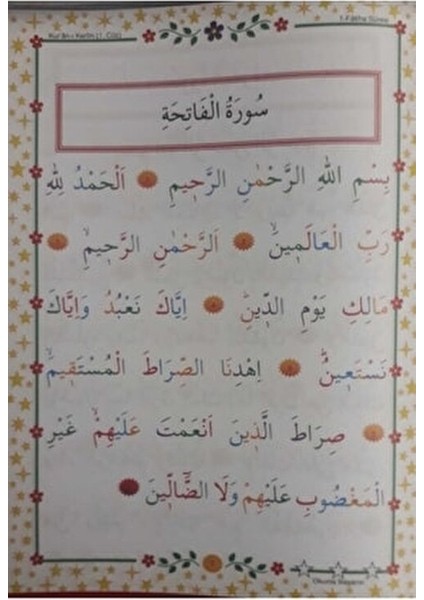 Kur'ân-ı Kerîm (1. Cüz)
1-Fâtiha Sûresi
سُورَةُ الْفَاتِحَةِ
بِسْمِ اللهِ الرَّحْمٰنِ الرَّحٖيمِ ١ اَلْحَمْدُ لِلّٰهِ
رَبِّ الْعَالَمٖينَۙ ٢ اَلرَّحْمٰنِ الرَّحٖيمِۙ ٣
مَالِكِ يَوْمِ الدّٖينِؕ ٤ اِيَّاكَ نَعْبُدُ وَاِيَّاكَ
نَسْتَعٖينُؕ ٥ اِهْدِنَا الصِّرَاطَ الْمُسْتَقٖيمَۙ
٦ صِرَاطَ الَّذٖينَ اَنْعَمْتَ عَلَيْهِمْۙ غَيْرِ
الْمَغْضُوبِ عَلَيْهِمْ وَلَا الضَّٓالّٖينَ ٧